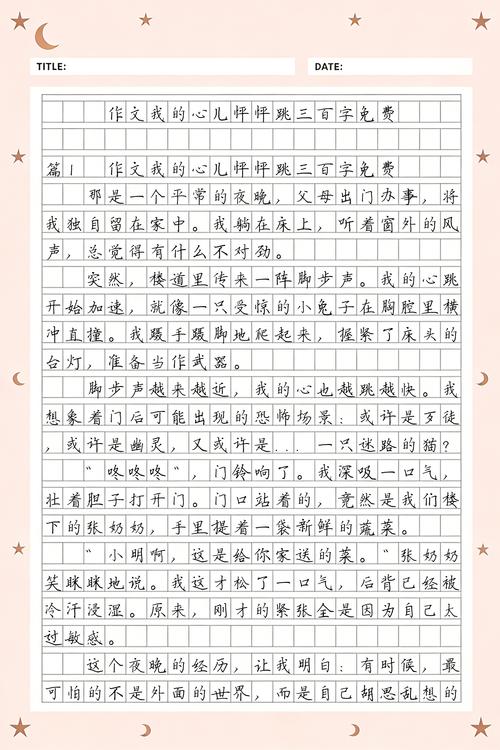 TITLE:
DATE:
作文我的心儿怦怦跳三百字免费
篇1 作文我的心儿怦怦跳三百字免费
那是一个平常的夜晚，父母出门办事，将
我独自留在家中。我躺在床上，听着窗外的风
声，总觉得有什么不对劲。
突然，楼道里传来一阵脚步声。我的心跳
开始加速，就像一只受惊的小兔子在胸腔里横
冲直撞。我蹑手蹑脚地爬起来，握紧了床头的
台灯，准备当作武器。
脚步声越来越近，我的心也越跳越快。我
想象着门后可能出现的恐怖场景：或许是歹徒
，或许是幽灵，又或许是... 一只迷路的猫？
"咚咚咚"，门铃响了。我深吸一口气，
壮着胆子打开门。门口站着的，竟然是我们楼
下的张奶奶，手里提着一袋新鲜的蔬菜。
"小明啊，这是给你家送的菜。"张奶奶
笑眯眯地说。我这才松了一口气，后背已经被
冷汗浸湿。原来，刚才的紧张全是因为自己太
过敏感。
这个夜晚的经历，让我明白：有时候，最
可怕的不是外面的世界，而是自己胡思乱想的